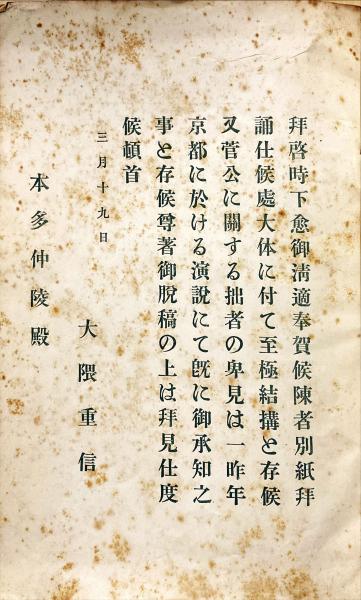 拜啓時下愈御淸適奉賀候陳者別紙拜
誦仕候處大体に付て至極結搆と存候
又菅公に關する拙者の卑見は一昨年
京都に於ける演説にて旣に御承知之
事と存候尊著御脫稿の上は拜見仕度
候頓首
三月十九日
大隈重信
本多仲陵殿